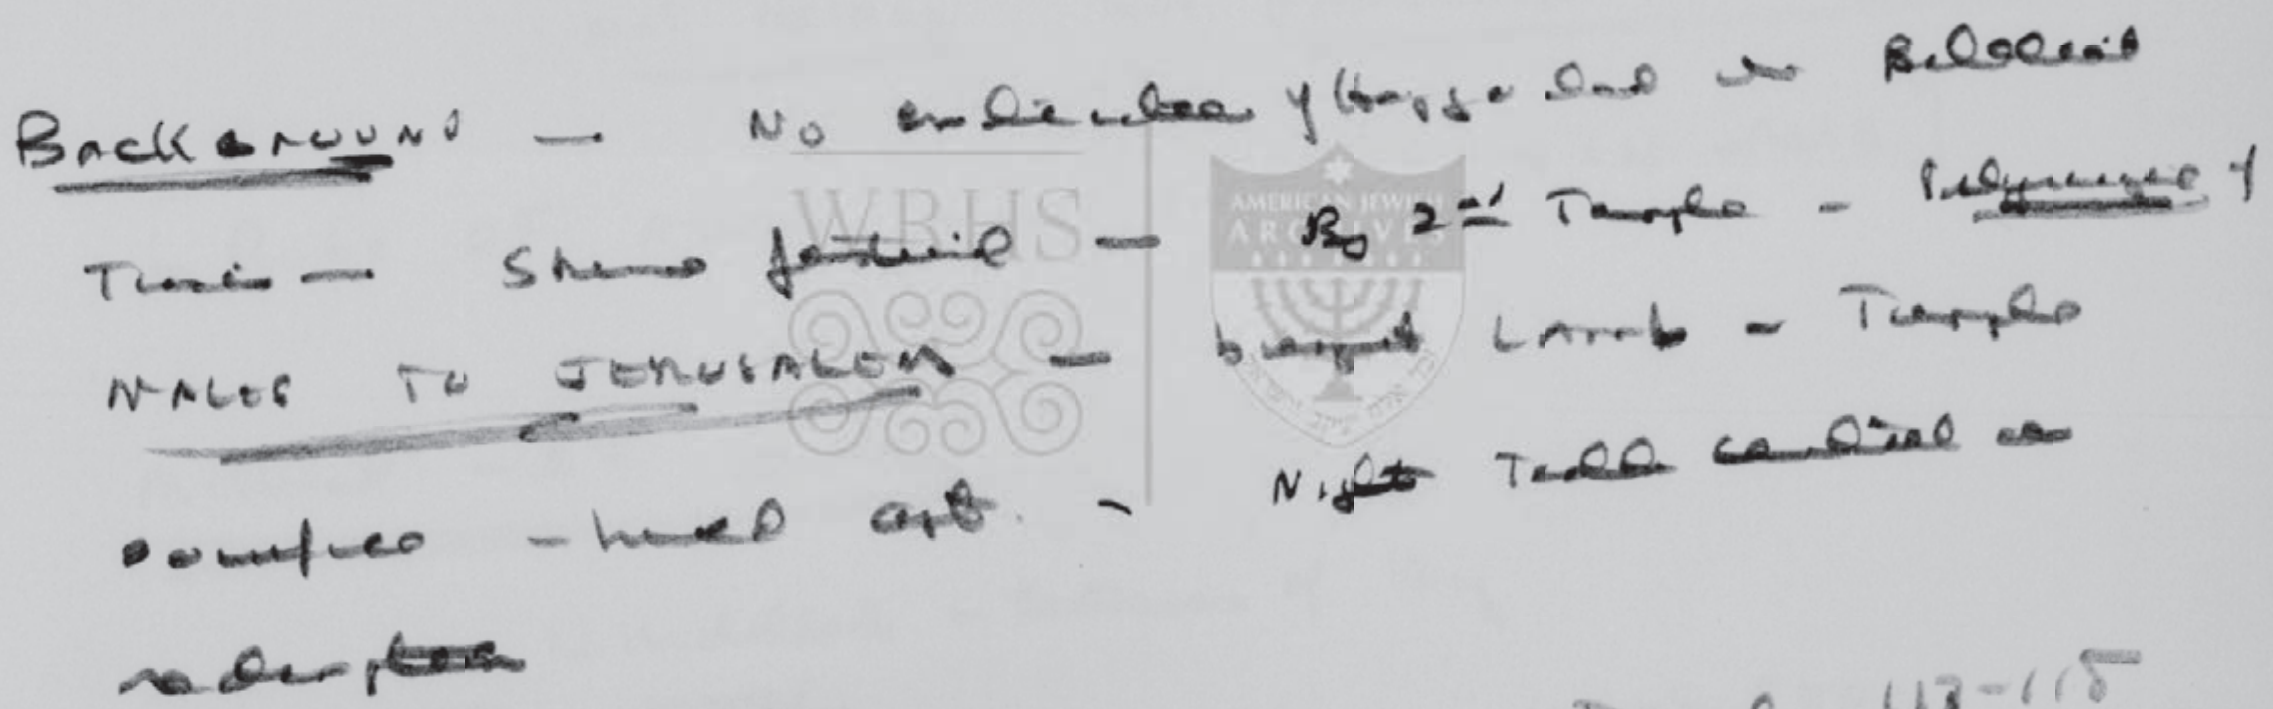 BACKGROUND — No indication of Haggadah in Biblical
Times — Shrine festival — By 2nd Temple - Pilgrimage of
MALES TO JERUSALEM — brought LAMB - Temple
sacrifice - - Night Table centered on
redemption
113-115
WRHS
AMERICAN JEWISH
ARCHIVES